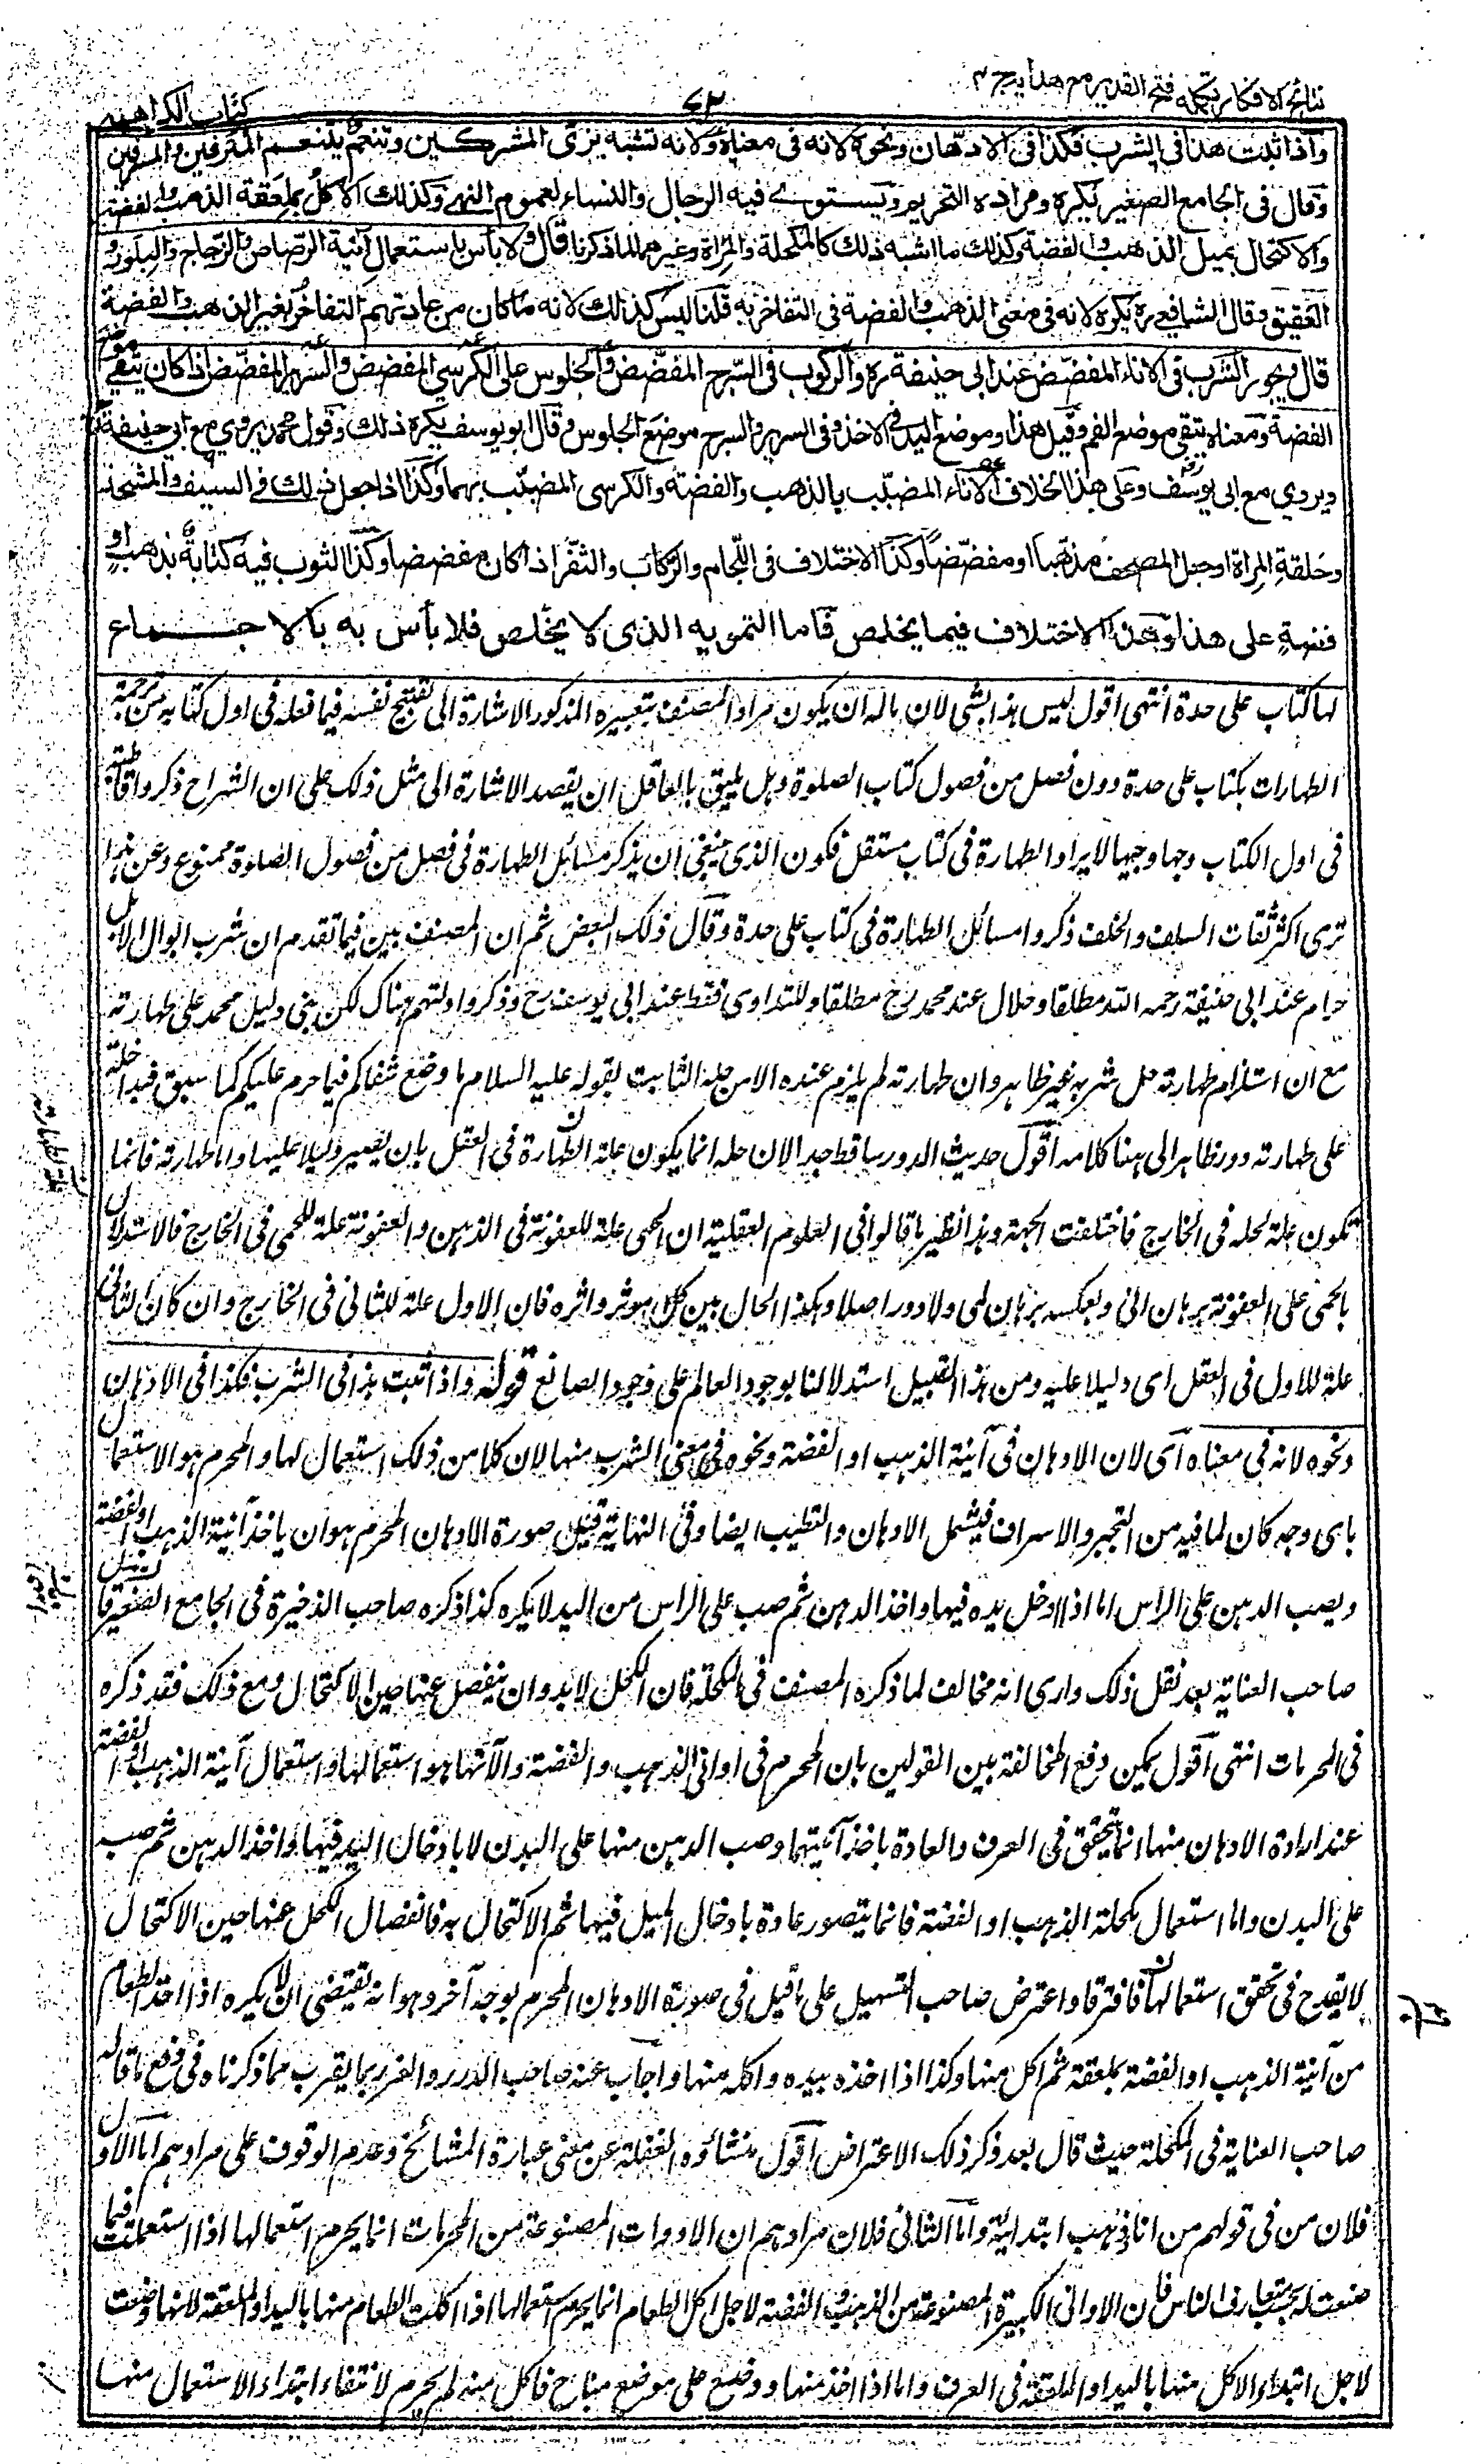 نتائج الافكار تكمله فتح القدير مع هدايه ج ٤
٧٢
كتاب الكراهية
واذا ثبت هذا فى الشرب فكذا فى الادهان ونحوه لانه فى معناه ولانه تشبه بزى المشركين وتنعم بتنعم المترفين والمسرفين
وقال فى الجامع الصغير يكره ومراده التحريم ويستوى فيه الرجال والنساء لعموم النهى وكذلك الاكل بملعقة الذهب والفضة
والاكتحال بميل الذهب والفضة وكذلك ما اشبه ذلك كالمكحلة والمرآة وغيرهما لما ذكرنا قال ولا بأس باستعمال آنية الرصاص والزجاج والبلور و
العقيق وقال الشافعى ره يكره لانه فى معنى الذهب والفضة فى التفاخر به قلنا ليس كذلك لانه ما كان من عادتهم التفاخر بغير الذهب والفضة
قال ويجوز الشرب فى الاناء المفضض عند ابى حنيفة ره والركوب فى السرج المفضض والجلوس على الكرسى المفضض والسرير المفضض اذا كان يتقى موضع
الفضة ومعناه يتقى موضع الفم وقيل هذا وموضع اليد فى الاخذ وفى السرير والسرج موضع الجلوس وقال ابو يوسف يكره ذلك وقول محمد يروى مع ابى حنيفة
ويروى مع ابى يوسف وعلى هذا الخلاف الاناء المضبب بالذهب والفضة والكرسى المضبب بهما وكذا اذا جعل ذلك فى السيف والمشحذ
وحلقة المرآة او جعل المصحف مذهبا او مفضضا وكذا الاختلاف فى اللجام والركاب والثفر اذا كان مفضضا وكذا الثوب فيه كتابة بذهب او
فضة على هذا وهذا الاختلاف فيما يخلص فاما التمويه الذى لا يخلص فلا بأس به بالاجماع
لها كتاب على حدة انتهى اقول ليس هذا بشى لان باله ان يكون مراد المصنف بتعبيره المذكور الاشارة الى تقبيح نفسه فيما فعله فى اول كتابه من ترجمة
الطهارات بكتاب على حدة دون فصل من فصول كتاب الصلوة وهل يليق بالعاقل ان يقصد الاشارة الى مثل ذلك على ان الشراح ذكروا قاطبة
فى اول الكتاب وجها وجيها لايراد الطهارة فى كتاب مستقل فكون الذى ينبغى ان يذكر مسائل الطهارة فى فصل من فصول الصلوة ممنوع وعن هذا
ترى اكثر ثقات السلف والخلف ذكروا مسائل الطهارة فى كتاب على حدة وقال ذلك البعض ثم ان المصنف بين فيما تقدم ان شرب ابوال الابل
حرام عند ابى حنيفة رحمه الله مطلقا وحلال عند محمد رح مطلقا وللتداوى فقط عند ابى يوسف رح وذكروا ادلتهم هناك لكن بنى دليل محمد على طهارته
مع ان استلزام طهارته حل شربه غير ظاهر وان طهارته لم يلزم عنده الا من حله الثابت بقوله عليه السلام ما وضع شفاكم فيما حرم عليكم كما سبق فبدا خله
على طهارته دور ظاهر الى هنا كلامه اقول حديث الدور ساقط جدا لان حله انما يكون علة الطهارة فى العقل بان يصير دليلا عليها واما طهارته فانما
تكون علة لحله فى الخارج فاختلفت الجهة وهذا نظير ما قالوا فى العلوم العقلية ان الحمى علة للعفونة فى الذهن والعفونة علة للحمى فى الخارج فالاستدلال
بالحمى على العفونة برهان انى وبعكسه برهان لمى ولا دور اصلا وهكذا الحال بين كل موثر واثره فان الاول علة للثانى فى الخارج وان كان الثانى
علة للاول فى العقل اى دليلا عليه ومن هذا القبيل استدلالنا بوجود العالم على وجود الصانع قوله واذا ثبت هذا فى الشرب فكذا فى الادهان
ونحوه لانه فى معناه اى لان الادهان فى آنية الذهب او الفضة ونحوه فى معنى الشرب منها لان كلا من ذلك استعمال لها والمحرم هو الاستعمال
باى وجه كان لما فيه من التجبر والاسراف فيشمل الادهان والتطيب ايضا وفى النهاية قيل صورة الادهان المحرم هو ان ياخذ آنية الذهب او الفضة
ويصب الدهن على الراس اما اذا ادخل يده فيها واخذ الدهن ثم صب على الراس من اليد لا يكره كذا ذكره صاحب الذخيرة فى الجامع الصغير قال
صاحب العناية بعد نقل ذلك وارى انه مخالف لما ذكره المصنف فى المكحلة فان الكحل لا بد وان ينفصل عنها حين الاكتحال ومع ذلك فقد ذكره
فى المحرمات انتهى اقول يمكن دفع المخالفة بين القولين بان المحرم فى اوانى الذهب والفضة وآلاتها هو استعمالها واستعمال آنية الذهب او الفضة
عند ارادة الادهان منها انما يتحقق فى العرف والعادة باخذ آنيتهما وصب الدهن منها على البدن لا بادخال اليد فيها واخذ الدهن ثم صب
على البدن واما استعمال مكحلة الذهب او الفضة فانما يتصور عادة بادخال الميل فيها ثم الاكتحال به فانفصال الكحل عنها حين الاكتحال
لا يقدح فى تحقق استعمالها فافترقا واعترض صاحب التسهيل على ما قيل فى صورة الادهان المحرم بوجه آخر وهو انه يقتضى ان لا يكره اذا اخذ الطعام
من آنية الذهب او الفضة بملعقة ثم اكل منها وكذا اذا اخذه بيده واكله منها واجاب عنه صاحب الدرر والغرر بما يقرب مما ذكرناه فى دفع ما قاله
صاحب العناية فى المكحلة حيث قال بعد ذكر ذلك الاعتراض اقول منشاؤه الغفلة عن معنى عبارة المشائخ وعدم الوقوف على مرادهم اما الاول
فلان من فى قولهم من اناء ذهب ابتدائية واما الثانى فلان مرادهم ان الادوات المصنوعة من المحرمات انما يحرم استعمالها اذا استعملت فيما
صنعت له بحسب متعارف الناس فان الاوانى الكبيرة المصنوعة من الذهب والفضة لاجل اكل الطعام انما يحرم استعمالها اذا اكلت الطعام منها باليد او الملعقة لانها وضعت
لاجل ابتداء الاكل منها باليد او الملعقة فى العرف واما اذا اخذ منها ووضع على موضع مباح فاكل منه لم يحرم لانتفاء ابتداء الاستعمال منها